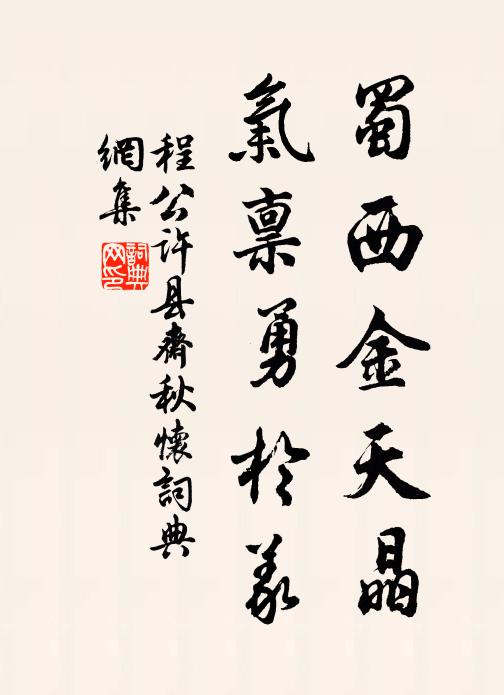 蜀西金天晶
氣稟勇於義
程公许县齋秋懷詞典
網集
詞典網印